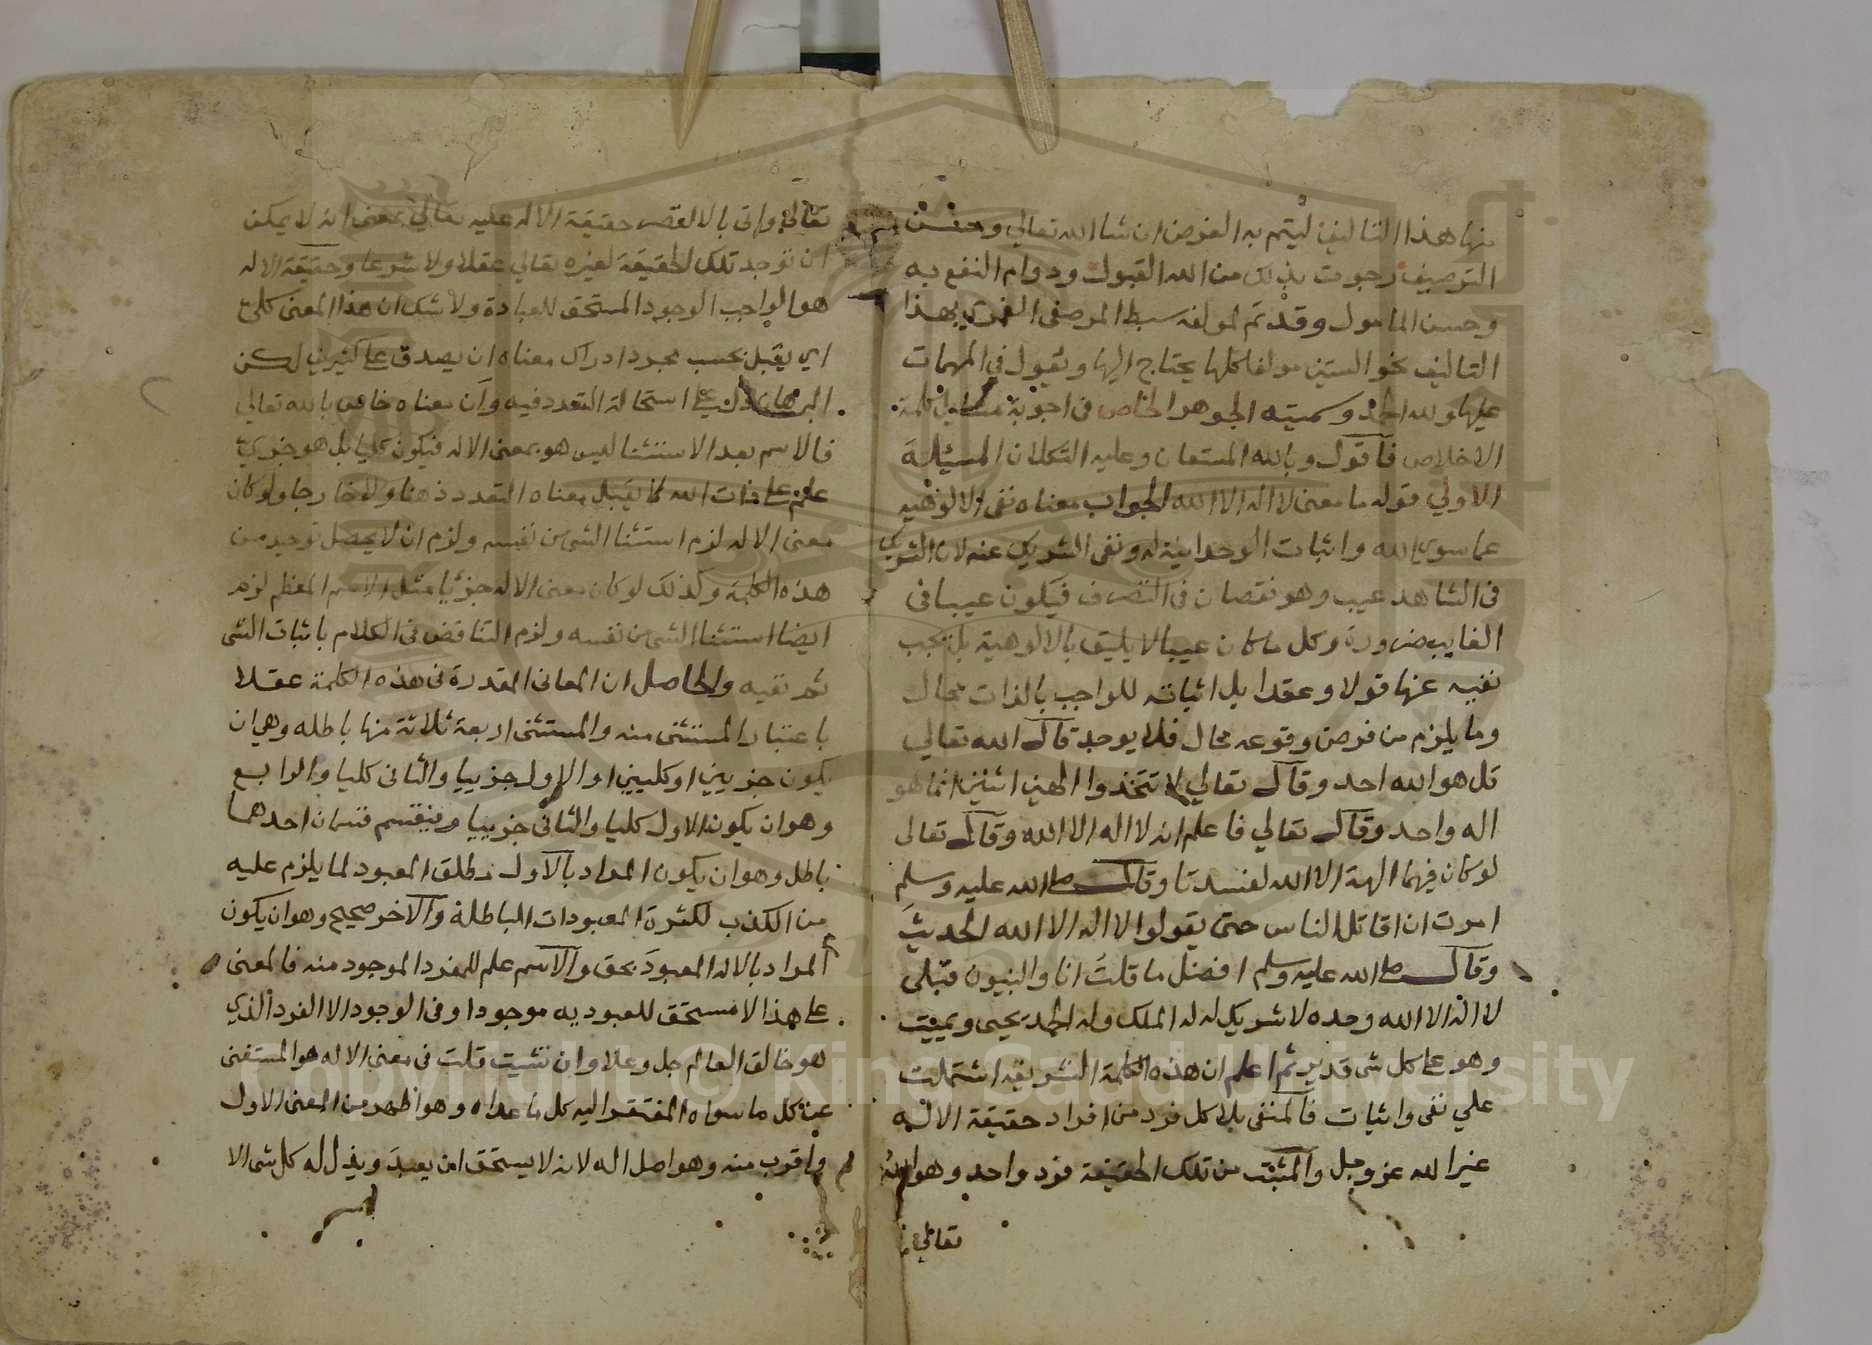 منها هذا التاليف ليتم به الغرض ان شا الله تعالي وحسن
الترصيف رجوت بذلك من الله القبول ودوام النفع به
وحسن المامول وقد تم لمولفه سبط المرصفي الغمري بهذا
التاليف نحو الستين مولفا كلها يحتاج اليها ويقول في المهمات
عليها ولله الحمد وسميته الجوهر الخاص في اجوبة مسايل كلمة
الاخلاص فاقول وبالله المستعان وعليه التكلان المسيلة
الاولي قوله ما معنى لا اله الا الله الجواب معناه نفى الالوهية
عما سوى الله واثبات الوحدانية له ونفى الشريك عنه لان الشريك
في الشاهد عيب وهو نقصان في التصرف فيكون عيبا في
الغايب ضرورة وكل ما كان عيبا لا يليق بالالوهية بل يجب
نفيه عنها قولا وعقدا بل اثباته للواجب بالذات محال
وما يلزم من فرض وقوعه محال فلا يوجد قال الله تعالي
قل هو الله احد وقال تعالي لا تتخذوا الهين اثنين انما هو
اله واحد وقال تعالي فاعلم انه لا اله الا الله وقال تعالى
لو كان فيهما الهة الا الله لفسدتا وقال صلى الله عليه وسلم
امرت ان اقاتل الناس حتى يقولوا لا اله الا الله الحديث
وقال صلى الله عليه وسلم افضل ما قلت انا والنبيون قبلى
لا اله الا الله وحده لا شريك له له الملك وله الحمد يحيى ويميت
وهو على كل شى قدير ثم اعلم ان هذه الكلمة الشريفة اشتملت
علي نفى واثبات فالمنفى بلا كل فرد من افراد حقيقة الاله
غير الله عز وجل والمثبت من تلك الحقيقة فرد واحد وهو الله
تعالى
تعالي واتى بالا لقصر حقيقة الاله عليه تعالي بمعنى انه لا يمكن
ان توجد تلك الحقيقة لغيره تعالي عقلا ولا شرعا وحقيقة الاله
هو الواجب الوجود المستحق للعبادة ولا شك ان هذا المعنى كلى
اي يقبل بحسب مجرد ادراك معناه ان يصدق على كثيرين لكن
البرهان دل على استحالة التعدد فيه وان معناه خاص بالله تعالي
فالاسم بعد الاستثنا ليس هو بمعنى الاله فيكون كليا بل هو جزي
علم على ذات الله لا يقبل معناه التعدد ذهنا ولا خارجا ولو كان
معنى الاله لزم استثنا الشى من نفسه ولزم ان لا يحصل توحيد من
هذه الكلمة وكذلك لو كان معنى الاله جزئيا مثل الاسم المعظم لزم
ايضا استثنا الشى من نفسه ولزم التناقض في الكلام باثبات الشى
ثم نفيه والحاصل ان المعانى المقدرة في هذه الكلمة عقلا
باعتبار المستثنى منه والمستثنى اربعة ثلاثة منها باطله وهي ان
يكون جزييين او كليين او الاول جزييا والثانى كليا والرابع
وهو ان يكون الاول كليا والثانى جزييا وينقسم قسمان احدهما
باطل وهو ان يكون المراد بالاول مطلق المعبود لما يلزم عليه
من الكذب لكثرة المعبودات الباطلة والاخر صحيح وهو ان يكون
المراد بالاله المعبود بحق والاسم علم للمفرد الموجود منه فالمعنى
على هذا لا مستحق للعبوديه موجودا وفى الوجود الا الفرد الذي
هو خالق العالم جل وعلا وان شيت قلت في معنى الاله هو المستغنى
عن كل ما سواه المفتقر اليه كل ما عداه وهو اظهر من المعنى الاول
واقرب منه وهو اصل اله لانه لا يستحق ان يعبد ويذل له كل شى الا
Copyright © King Saud University